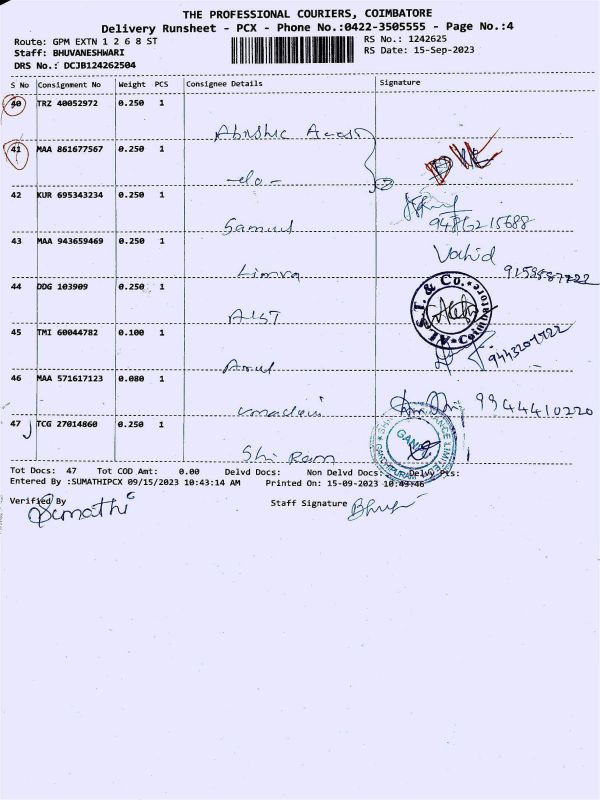 THE PROFESSIONAL COURIERS, COIMBATORE
Delivery Runsheet - PCX - Phone No.:0422-3505555 - Page No.:4
Route: GPM EXTN 1 2 6 8 ST
RS No.: 1242625
Staff: BHUVANESHWARI
RS Date: 15-Sep-2023
DRS No.: DCJB124262504
S No Consignment No Weight PCS Consignee Details Signature
40 TRZ 40052972 0.250 1
41 MAA 861677567 0.250 1
-do-
42 KUR 695343234 0.250 1
Samuel 9486215688
43 MAA 943659469 0.250 1 Vahid
Limra
44 DDG 103909 0.250 1
A.L.S.T. & Co. Coimbatore
ALST
45 TMI 60044782 0.100 1
Amul
46 MAA 571617123 0.080 1
99444410220
47 TCG 27014860 0.250 1
Shi Ram
Tot Docs: 47 Tot COD Amt: 0.00 Delvd Docs: Non Delvd Docs: Delvy Pts:
Entered By :SUMATHIPCX 09/15/2023 10:43:14 AM Printed On: 15-09-2023 10:43:46
Verified By Staff Signature
Sumathi